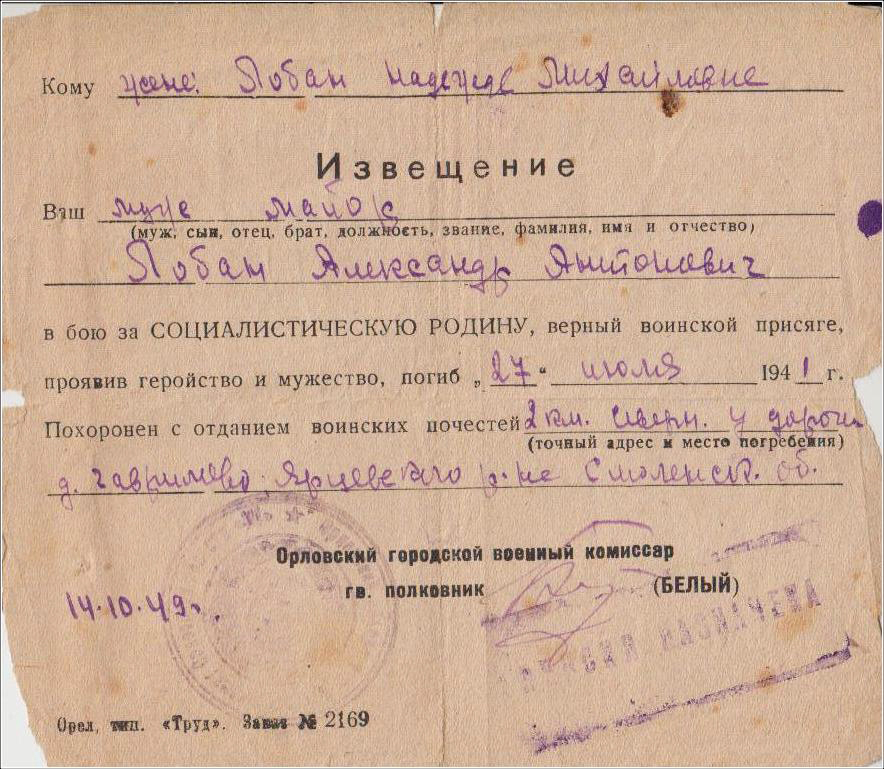 Кому жене: Лобан Надежде Михайловне
Извещение
Ваш муж майор
(муж, сын, отец, брат, должность, звание, фамилия, имя и отчество)
Лобан Александр Антонович
в бою за СОЦИАЛИСТИЧЕСКУЮ РОДИНУ, верный воинской присяге,
проявив геройство и мужество, погиб „27“ июля 1941 г.
Похоронен с отданием воинских почестей 2 км. у дороги
(точный адрес и место погребения)
д. Гаврилово Ярцевского р-на Смоленск. об.
Орловский городской военный комиссар
гв. полковник (БЕЛЫЙ)
14.10.49г.
Орел, тип. «Труд». Заказ № 2169